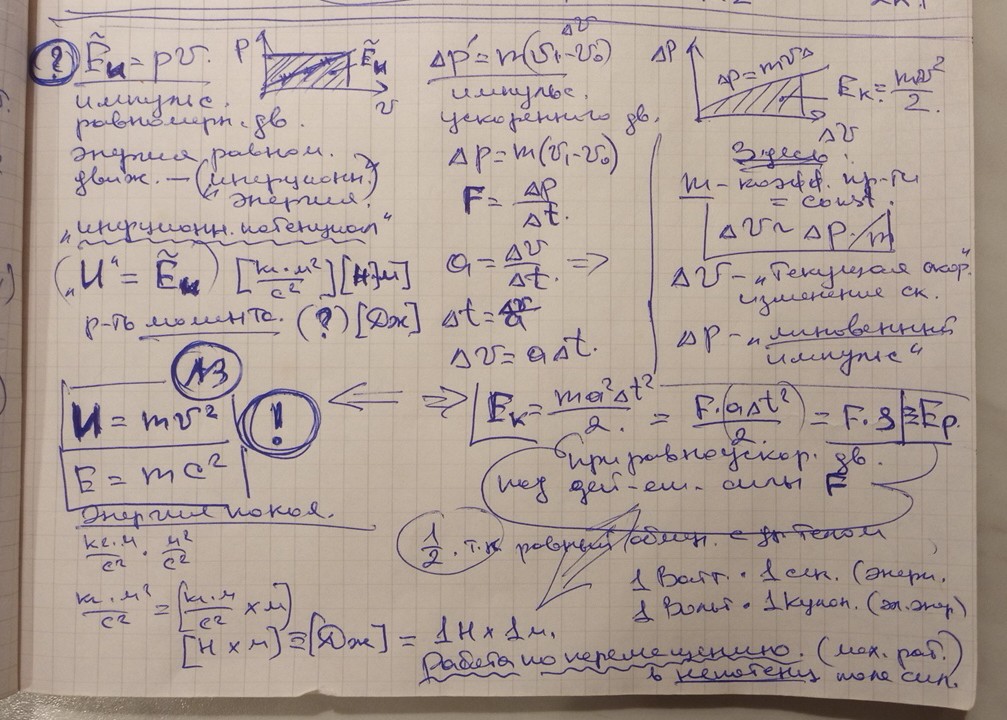 ?
Ẽи = pv.
импульс.
равномерн. дв.
Энергия равном.
движ. — (инерционн.)
энергия.
„инерционн. потенциал“
(„И“ = Ẽи) [кг·м²/с²] [Н×м]
р-ть момента. (?) [Дж]
P
Ẽи
v
Δv
Δp' = m(v₁-v₀)
импульс.
ускоренного дв.
Δp = m(v₁-v₀)
F = Δp/Δt.
a = Δv/Δt. ⇒
Δt = Δv/a
Δv = aΔt.
Δp
Δp = mvΔ
Eк = mv²/2.
Δv
Здесь:
m - коэфф. пр-ти
= const.
Δv ~ Δp/m
Δv - „Текущая скор.“
изменение ск.
Δp - „мгновенный
импульс“
№3
И = mv²
!
E = mc²
Энергия покоя.
⇐ ⇒
Eк = ma²Δt²/2. = F·(aΔt²)/2. = F·S ≡ Ep.
При равноускор. дв.
под дей-ем силы F
1/2. т.к равный обмен. с
телом
кг·м/с² · м²/с²
кг·м²/с² = [кг·м/с² × м]
[Н × м] ≡ [Дж] = 1Н × 1м.
1 Ватт · 1 сек. (энерг.
1 Вольт · 1 Кулон. (эл. энер)
Работа по перемещению. (мех. раб.)
в непотенц поле сил.